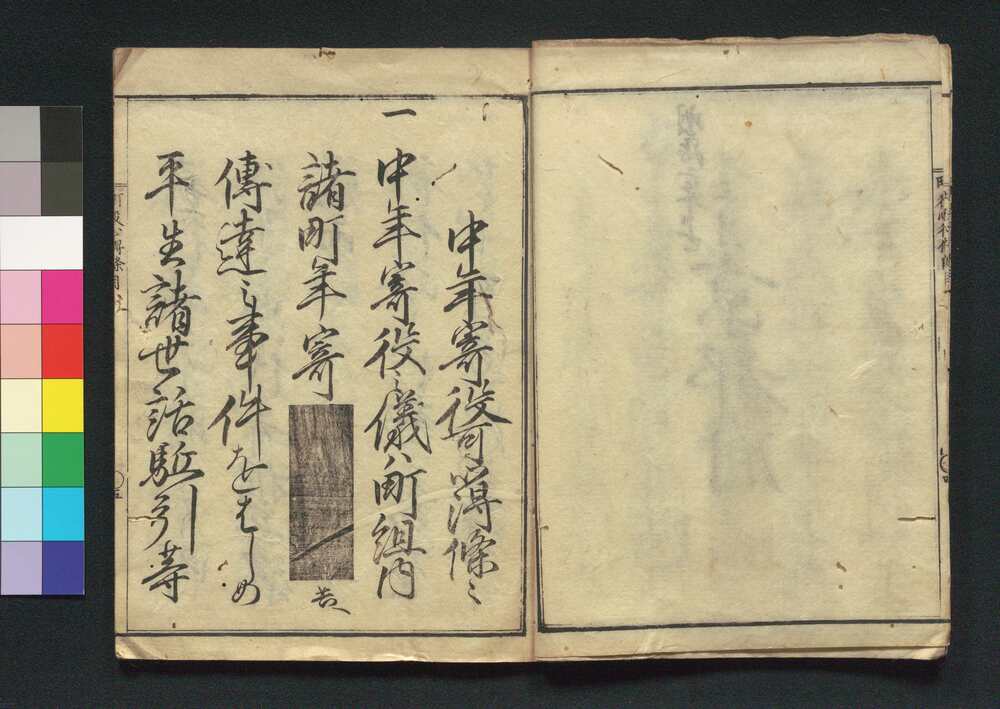 中年寄役可心得條々
一
中年寄役之儀ハ町組内
諸町年寄
傳達之事件をはしめ
平生諸世話駈引等